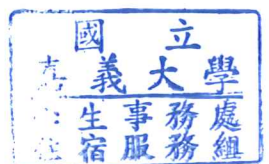 國立
嘉義大學
生事務處
宿服務組